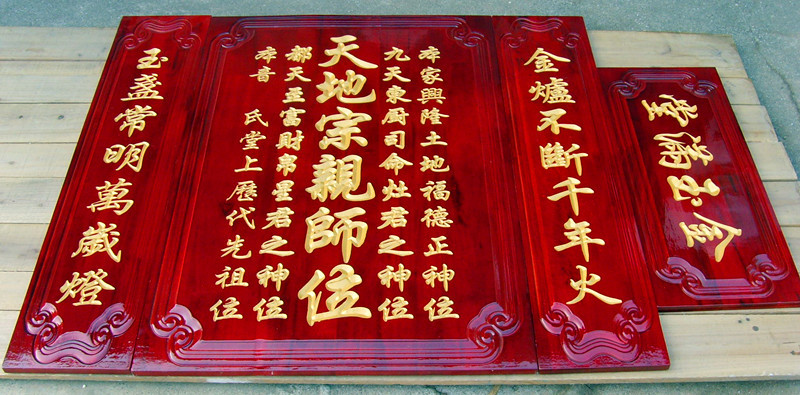 金玉滿堂
金爐不斷千年火
本家興隆土地福德正神位
九天東厨司命灶君之神位
天地宗親師位
都天至富財帛星君之神位
本音 氏堂上歷代先祖位
玉盞常明萬歲燈